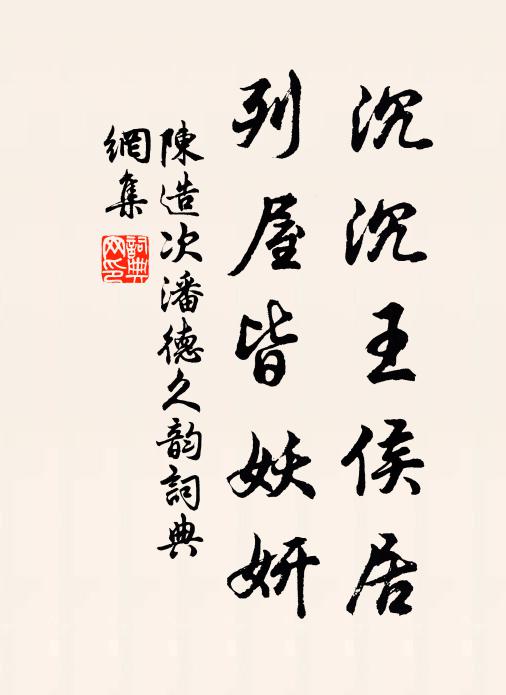 沉沉王侯居
列屋皆妖妍
陳造次潘德久韵詞典
網集
詞典
网印